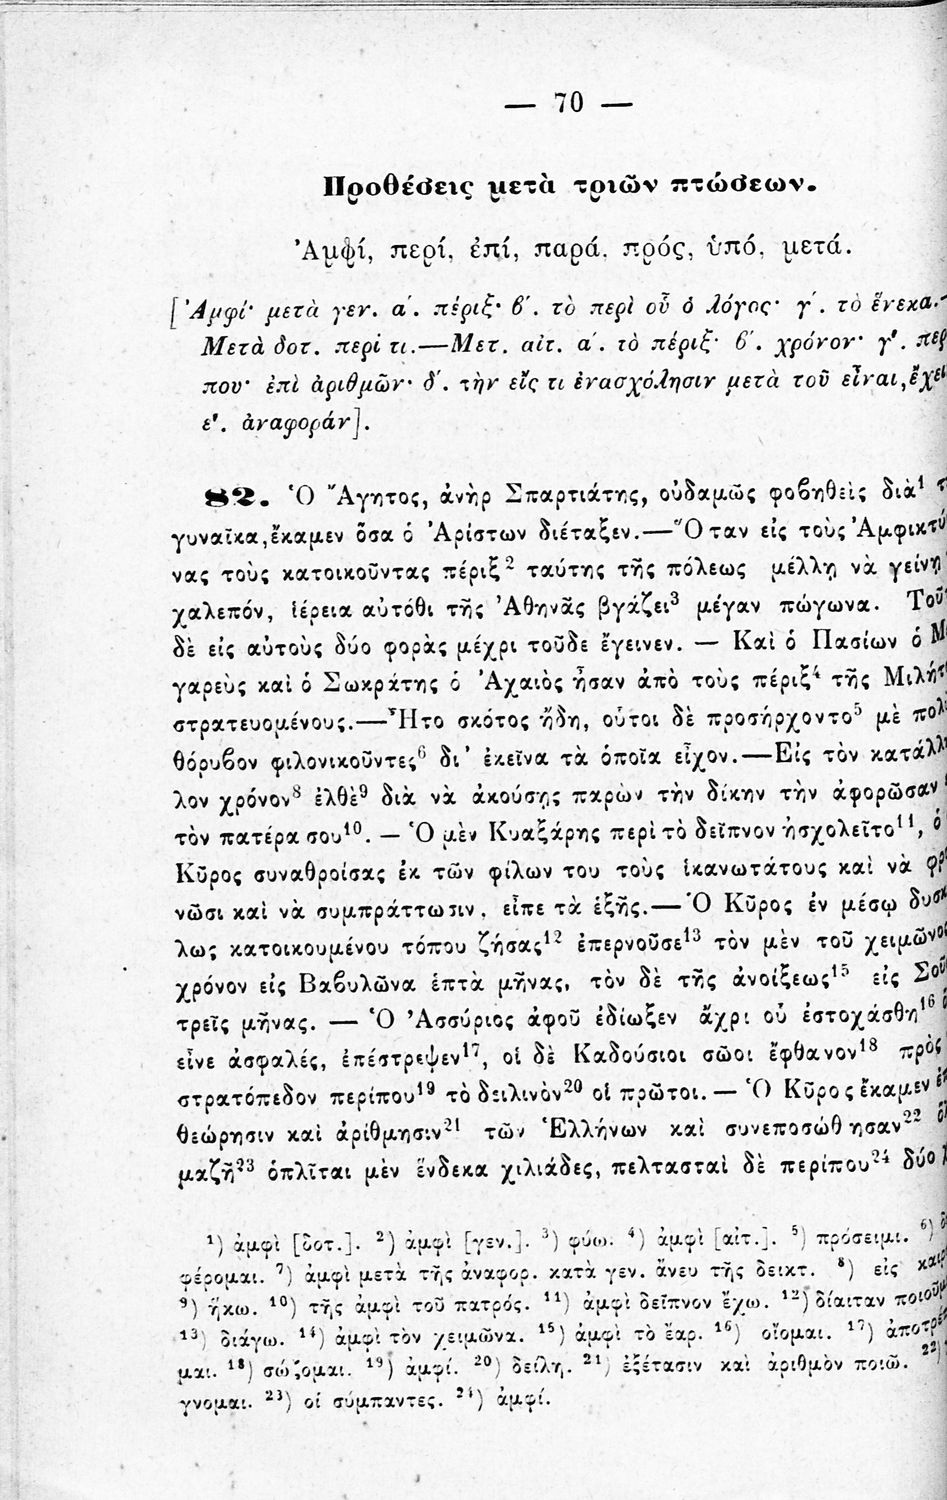 — 70 —
Προθέσεις μετὰ τριῶν πτώσεων.
Ἀμφί, περί, ἐπί, παρά, πρός, ὑπό, μετά.
[Ἀμφί· μετὰ γεν. α΄. πέριξ· β΄. τὸ περὶ οὗ ὁ λόγος· γ΄. τὸ ἕνεκα.—
Μετὰ δοτ. περί τι.—Μετ. αἰτ. α΄. τὸ πέριξ· β΄. χρόνον· γ΄.
που· ἐπὶ ἀριθμῶν· δ΄. τὴν εἴς τι ἐνασχόλησιν μετὰ τοῦ εἶναι,
ε΄. ἀναφοράν].
82. Ὁ Ἄγητος, ἀνὴρ Σπαρτιάτης, οὐδαμῶς φοβηθεὶς διὰ¹
γυναῖκα, ἔκαμεν ὅσα ὁ Ἀρίστων διέταξεν.—Ὅταν εἰς τοὺς Ἀμφικτύ
νας τοὺς κατοικοῦντας πέριξ² ταύτης τῆς πόλεως μέλλῃ νὰ γείνῃ
χαλεπόν, ἱέρεια αὐτόθι τῆς Ἀθηνᾶς βγάζει³ μέγαν πώγωνα. Τοῦτ
δὲ εἰς αὐτοὺς δύο φορὰς μέχρι τοῦδε ἔγεινεν. — Καὶ ὁ Πασίων ὁ Μ
γαρεὺς καὶ ὁ Σωκράτης ὁ Ἀχαιὸς ἦσαν ἀπὸ τοὺς πέριξ⁴ τῆς Μιλήτ
στρατευομένους.—Ἦτο σκότος ἤδη, οὗτοι δὲ προσήρχοντο⁵ μὲ πολ
θόρυβον φιλονικοῦντες⁶ δι᾽ ἐκεῖνα τὰ ὁποῖα εἶχον.—Εἰς τὸν κατάλλ
λον χρόνον⁸ ἐλθὲ⁹ διὰ νὰ ἀκούσῃς παρὼν τὴν δίκην τὴν ἀφορῶσαν
τὸν πατέρα σου¹⁰. — Ὁ μὲν Κυαξάρης περὶ τὸ δεῖπνον ἠσχολεῖτο¹¹, ὁ
Κῦρος συναθροίσας ἐκ τῶν φίλων του τοὺς ἱκανωτάτους καὶ νὰ φρ
νῶσι καὶ νὰ συμπράττωσιν, εἶπε τὰ ἑξῆς.— Ὁ Κῦρος ἐν μέσῳ δυσκ
λως κατοικουμένου τόπου ζήσας¹² ἐπερνοῦσε¹³ τὸν μὲν τοῦ χειμῶνος
χρόνον εἰς Βαβυλῶνα ἑπτὰ μῆνας, τὸν δὲ τῆς ἀνοίξεως¹⁵ εἰς Σοῦ
τρεῖς μῆνας. — Ὁ Ἀσσύριος ἀφοῦ ἐδίωξεν ἄχρι οὗ ἐστοχάσθη¹⁶
εἶνε ἀσφαλές, ἐπέστρεψεν¹⁷, οἱ δὲ Καδούσιοι σῶοι ἔφθανον¹⁸ πρὸς
στρατόπεδον περίπου¹⁹ τὸ δειλινὸν²⁰ οἱ πρῶτοι. — Ὁ Κῦρος ἔκαμεν
θεώρησιν καὶ ἀρίθμησιν²¹ τῶν Ἑλλήνων καὶ συνεποσώθησαν²²
μαζῆ²³ ὁπλῖται μὲν ἕνδεκα χιλιάδες, πελτασταὶ δὲ περίπου²⁴ δύο
¹) ἀμφὶ [δοτ.]. ²) ἀμφὶ [γεν.]. ³) φύω. ⁴) ἀμφὶ [αἰτ.]. ⁵) πρόσειμι. ⁶)
φέρομαι. ⁷) ἀμφὶ μετὰ τῆς ἀναφορ. κατὰ γεν. ἄνευ τῆς δεικτ. ⁸) εἰς
⁹) ἥκω. ¹⁰) τῆς ἀμφὶ τοῦ πατρός. ¹¹) ἀμφὶ δεῖπνον ἔχω. ¹²) δίαιταν ποιοῦμ
¹³) διάγω. ¹⁴) ἀμφὶ τὸν χειμῶνα. ¹⁵) ἀμφὶ τὸ ἔαρ. ¹⁶) οἴομαι. ¹⁷) ἀποτρέ
μαι. ¹⁸) σώζομαι. ¹⁹) ἀμφί. ²⁰) δείλη. ²¹) ἐξέτασιν καὶ ἀριθμὸν ποιῶ. ²²)
γνομαι. ²³) οἱ σύμπαντες. ²⁴) ἀμφί.